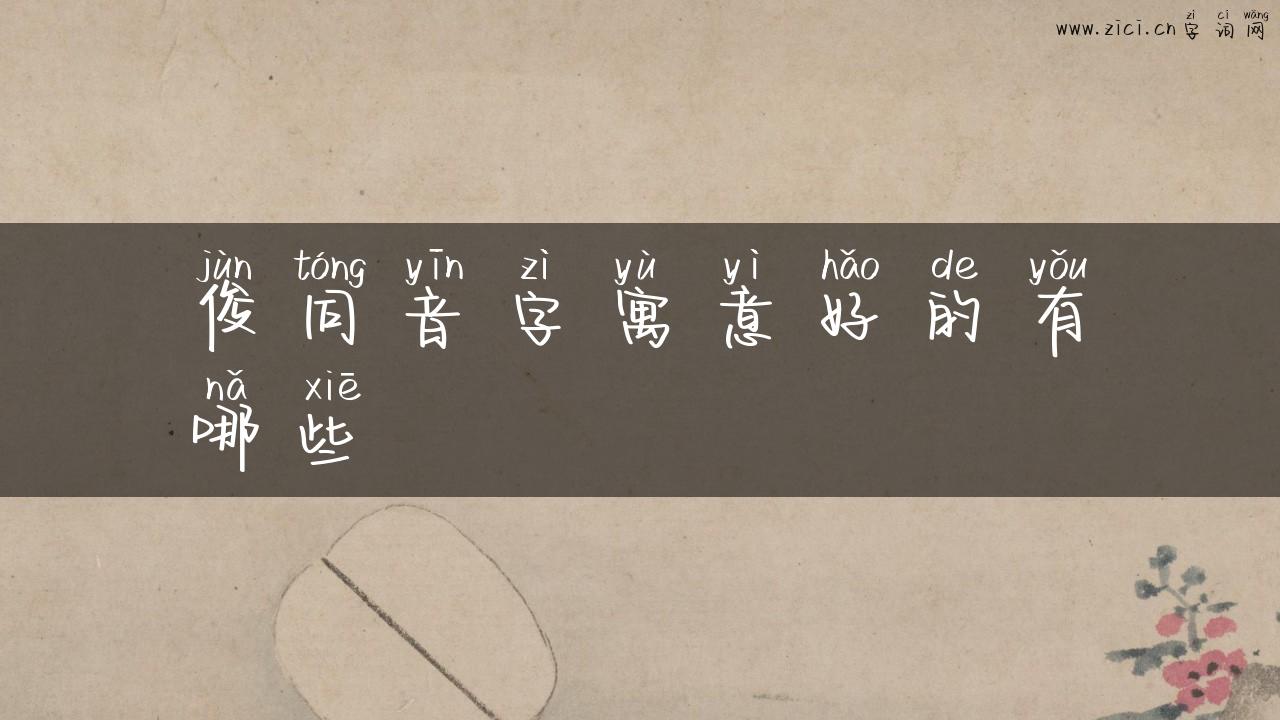 zì cí wǎng
www.zici.cn字词网
jùn tóng yīn zì yù yì hǎo de yǒu
俊同音字寓意好的有
nǎ xiē
哪些